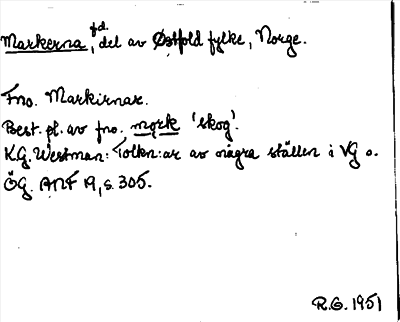 Markerna, fd. del av Østfold fylke, Norge.
Fno. Markirnar.
Best. pl. av fno. mǫrk 'skog'.
K.G. Westman: Tolkn:ar av några ställen i VG o.
ÖG. ANF 19, s. 305.
R.G. 1951